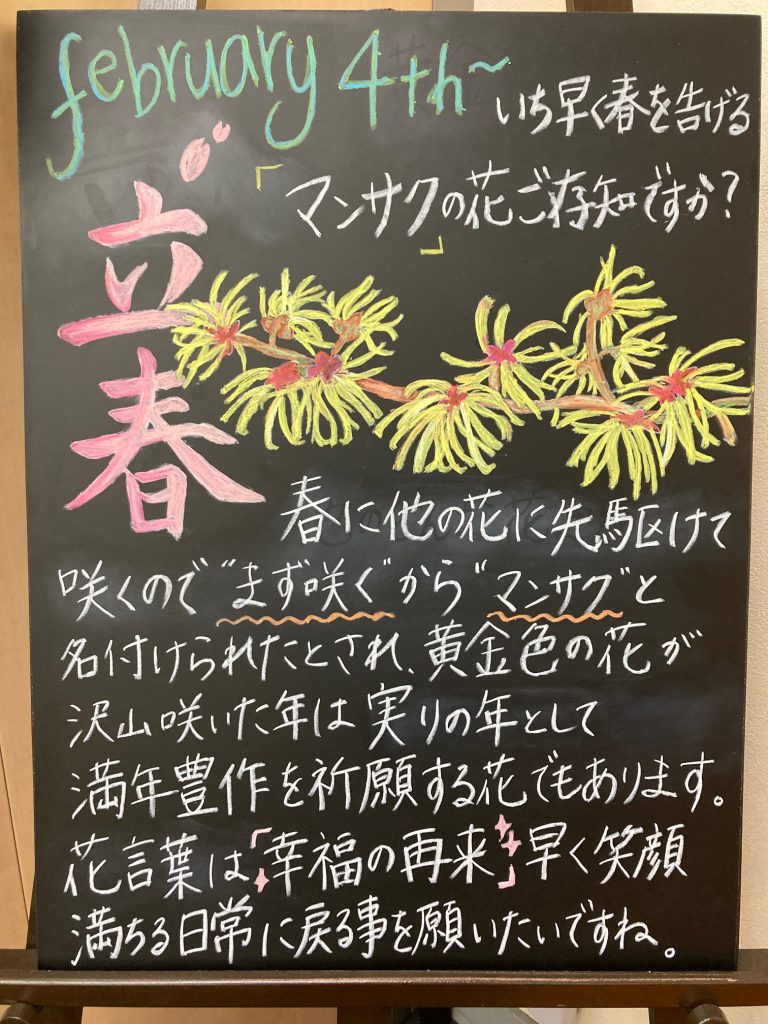 february 4th~
いち早く春を告げる
「マンサク」の花ご存知ですか?
立春
春に他の花に先駆けて
咲くので"まず咲ぐ"から"マンサグ"と
名付けられたとされ、黄金色の花が
沢山咲いた年は実りの年として
満年豊作を祈願する花でもあります。
花言葉は「幸福の再来」早く笑顔
満ちる日常に戻る事を願いたいですね。